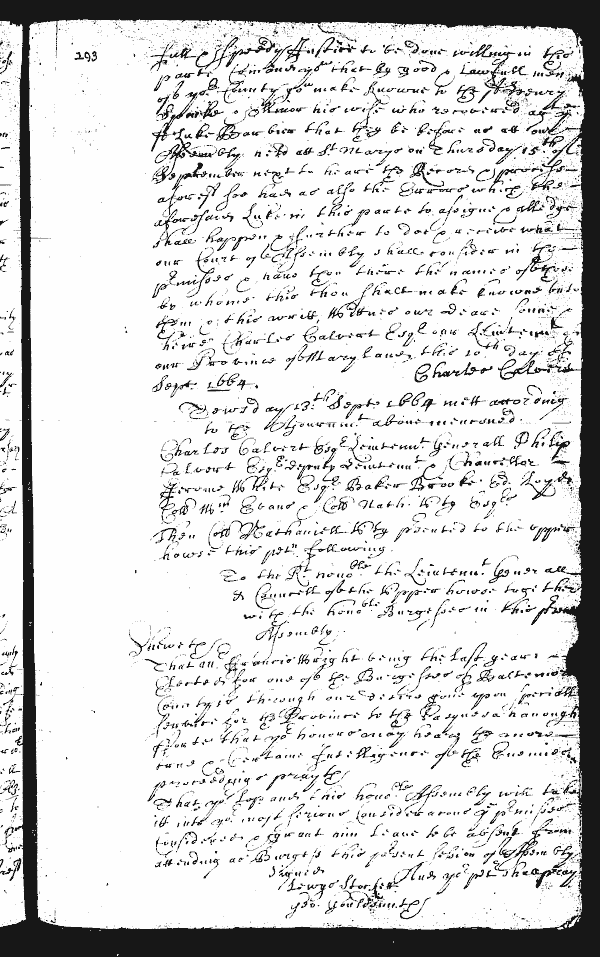 293
full & speedy Justice to be done willing in this
parte Comand yow that by good & Lawfull men
of yor County yow make knowne to the sd Henry
& Elinor his wife who recovered agt ye
sd Luke Barbier that they be before us att our
Assembly next att St Maryes on Thursday 15th of
September next to heare the Record & processe
aforesd soe had as also the Errors which the
aforesaid Luke in this parte to assigne & alledge
shall happen & further to doe & receive what
our Court of Assembly shall consider in the
pmisses & have thou there the names of those
by whome this thou shalt make knowne unto
them & this writt Wittnes our Deare sonne &
heire Charles Calvert Esqr our Leiutennt of
our Province of Maryland this 10th day of
Sept. 1664. Charles Calvert
Tewsday 13th Septr 1664 mett according
to the Adjournmt above mencioned.
Charles Calvert Esqr Leiutennt Generall Philip
Calvert Esqr deputy Leiutennt & Chancellor
Jerome White Esqr Baker Brooke Ed: Loyde
Coll Wm Evans & Coll Nath: Uty Esqrs
Then Coll Nathaniell Uty psented to the upper
howse this petn following.
To the Rt honoble the Leiutennt Generall
& Councell of the Upper howse together
with the honoble Burgesses in this psent
Assembly.
Sheweth
That an Francis Wright being the last yeare
Elected for one of the Burgeses of Baltemore
County is through our desire gone upon speciall
service for the Province to the Sasquesahanough
fforte that yor honors may heare the more
true & Certaine Intelligence of the Enemies
proceedings prayeth
That yor Lopp and this honoble Assembly will take
itt into yor most serious Consideracons ye pmisses
Considered & grant him leave to be absent from
attending as Burgess this psent session of Assembly
Signed And yor petr shall pray
Lewys Stockett
Geo. Gouldsmith